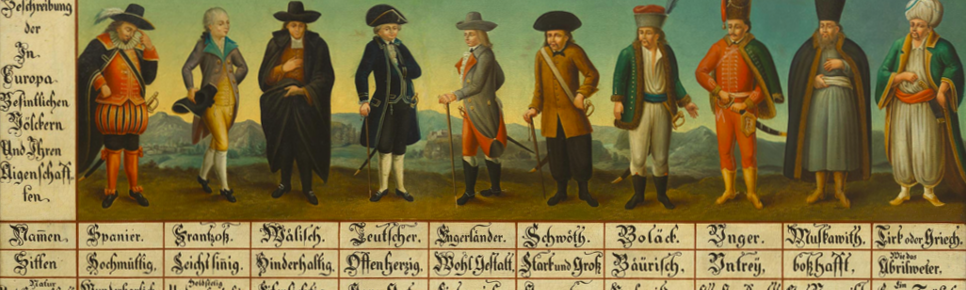 Beschreibung
der
In
Europa
Befintlichen
Völckern
Und Ihren
Aigenschaff-
ten.
Namen. Spanier. Frantzoß. Wälisch. Teutscher. Engerländer. Schwöth. Boläck. Unger. Muskawith. Tirk oder Griech.
Sitten Hochmüttig, Leichtsinig. Hinderhaltig. Offenherzig, Wohl Gestalt, Stark und Groß Bäurisch, Untrey, boßhafft, Wie das Abrilweter.